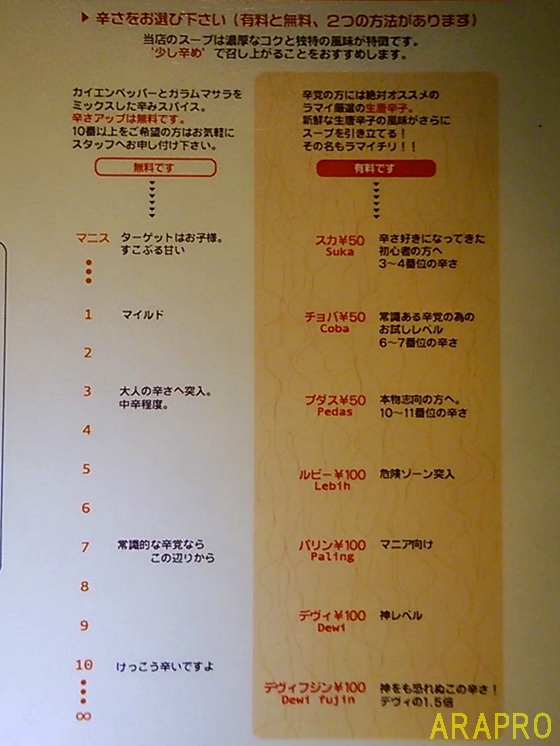 ▶ 辛さをお選び下さい（有料と無料、2つの方法があります）
当店のスープは濃厚なコクと独特の風味が特徴です。
'少し辛め' で召し上がることをおすすめします。
カイエンペッパーとガラムマサラを
ミックスした辛みスパイス。
辛さアップは無料です。
10番以上をご希望の方はお気軽に
スタッフへお申し付け下さい。
無料です
マニス ターゲットはお子様。
すこぶる甘い
1 マイルド
2
3 大人の辛さへ突入。
中辛程度。
4
5
6
7 常識的な辛党なら
この辺りから
8
9
10 けっこう辛いですよ
∞
辛党の方には絶対オススメの
ラマイ厳選の生唐辛子。
新鮮な生唐辛子の風味がさらに
スープを引き立てる！
その名もラマイチリ！！
有料です
スカ¥50 辛さ好きになってきた
Suka 初心者の方へ
3〜4番位の辛さ
チョバ¥50 常識ある辛党の為の
Coba お試しレベル
6〜7番位の辛さ
プダス¥50 本物志向の方へ。
Pedas 10〜11番位の辛さ
ルビー¥100 危険ゾーン突入
Lebih
パリン¥100 マニア向け
Paling
デヴィ¥100 神レベル
Dewi
デヴィフジン¥100 神をも恐れぬこの辛さ！
Dewi fujin デヴィの1.5倍
ARAPRO